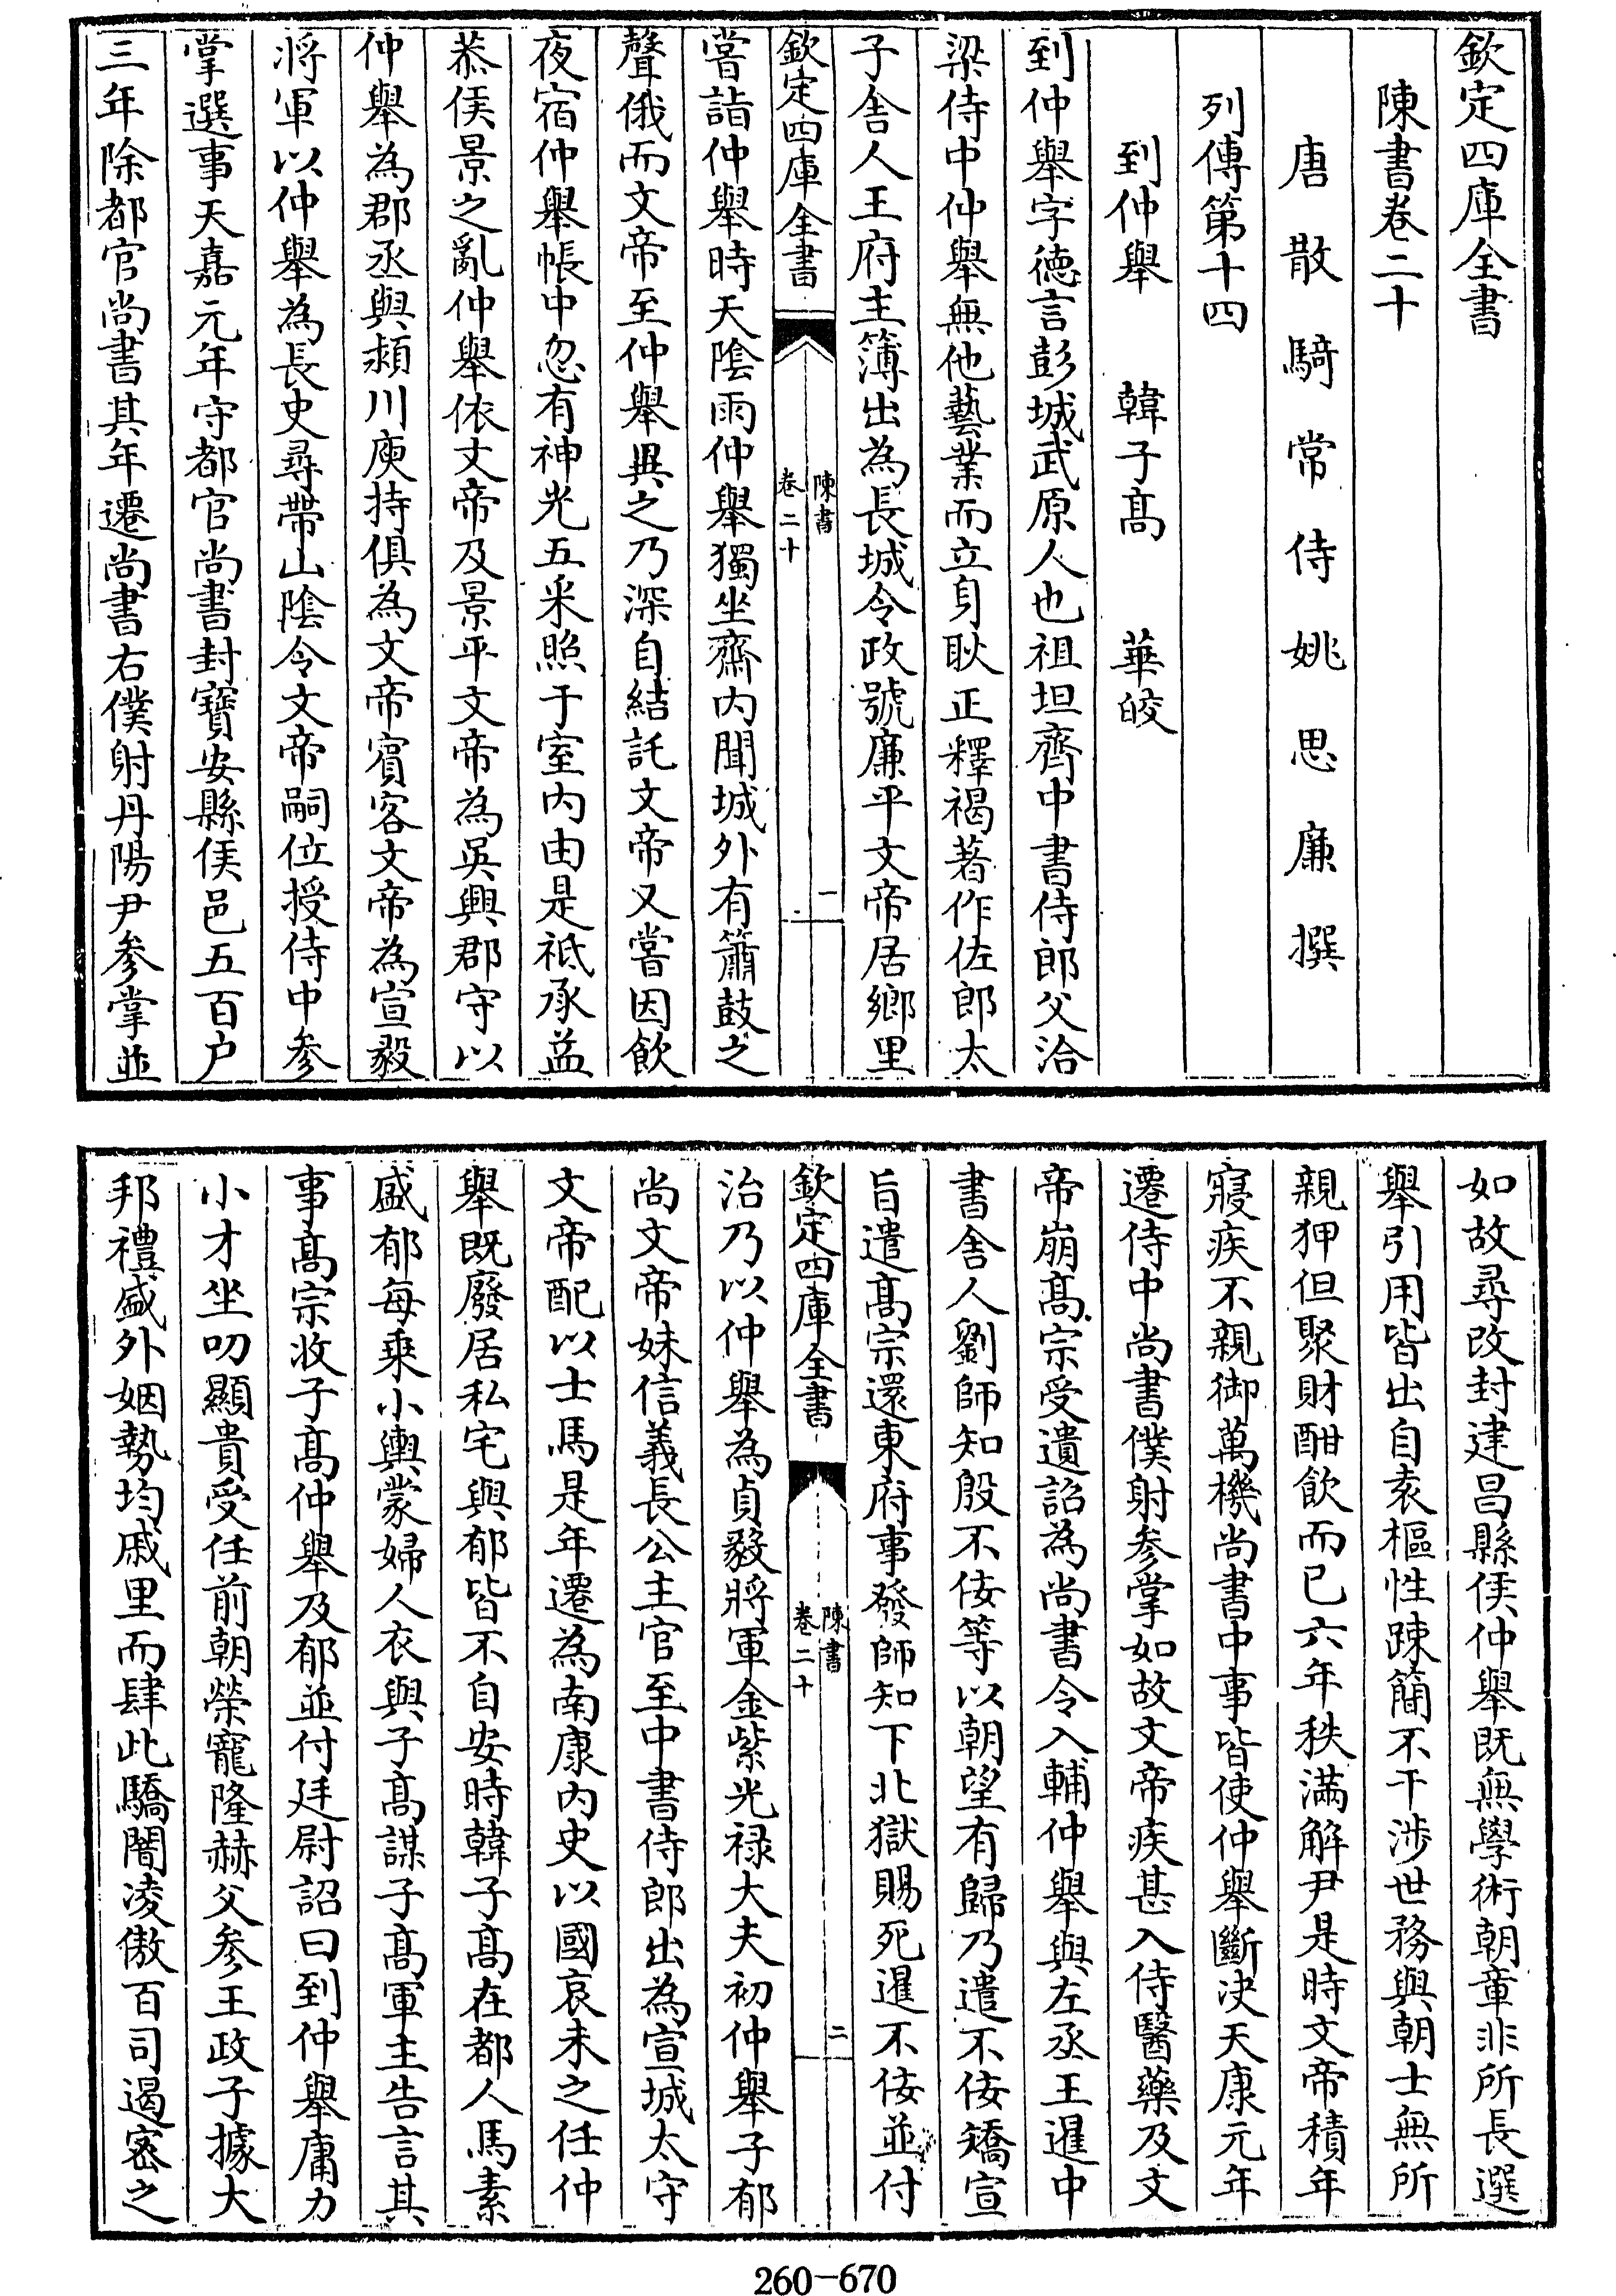 欽定四庫全書
陳書卷二十
唐散騎常侍姚思廉撰
列傳第十四
到仲舉　韓子髙　華皎
到仲舉字德言彭城武原人也祖坦齊中書侍郎父洽
梁侍中仲舉無他藝業而立身耿正釋褐著作佐郎太
子舍人王府主簿出為長城令政號廉平文帝居鄉里
欽定四庫全書
陳書
卷二十
一
嘗詣仲舉時天陰雨仲舉獨坐齋内聞城外有簫鼓之
聲俄而文帝至仲舉異之乃深自結託文帝又嘗因飲
夜宿仲舉帳中忽有神光五采照于室内由是祗承益
恭侯景之亂仲舉依文帝及景平文帝為吳興郡守以
仲舉為郡丞與潁川庾持俱為文帝賓客文帝為宣毅
將軍以仲舉為長史尋帶山陰令文帝嗣位授侍中參
掌選事天嘉元年守都官尚書封寶安縣侯邑五百户
三年除都官尚書其年遷尚書右僕射丹陽尹參掌並
如故尋改封建昌縣侯仲舉既無學術朝章非所長選
舉引用皆出自袁樞性踈簡不干涉世務與朝士無所
親狎但聚財酣飲而已六年秩滿解尹是時文帝積年
寢疾不親御萬機尚書中事皆使仲舉斷决天康元年
遷侍中尚書僕射參掌如故文帝疾甚入侍醫藥及文
帝崩髙宗受遺詔為尚書令入輔仲舉與左丞王暹中
書舍人劉師知殷不佞等以朝望有歸乃遣不佞矯宣
旨遣髙宗還東府事發師知下北獄賜死暹不佞並付
欽定四庫全書
陳書
卷二十
二
治乃以仲舉為貞毅將軍金紫光禄大夫初仲舉子郁
尚文帝妹信義長公主官至中書侍郎出為宣城太守
文帝配以士馬是年遷為南康内史以國哀未之任仲
舉既廢居私宅與郁皆不自安時韓子髙在都人馬素
盛郁每乗小輿蒙婦人衣與子髙謀子髙軍主告言其
事髙宗收子髙仲舉及郁並付廷尉詔曰到仲舉庸力
小才坐叨顯貴受任前朝榮寵隆赫父參王政子據大
邦禮盛外姻勢均戚里而肆此驕闇凌傲百司遏密之
260-670